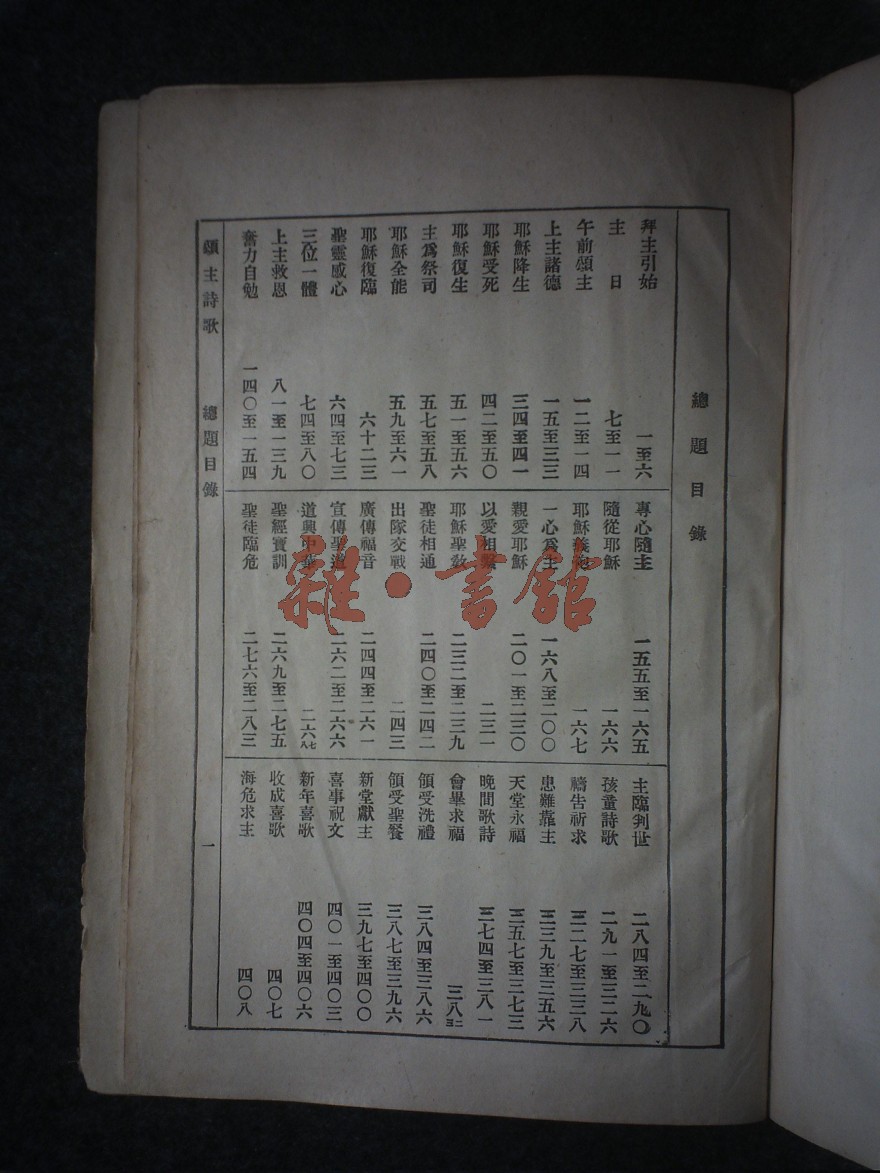 總題目錄
拜主引始 一至六
主日 七至一一
午前頌主 一二至一四
上主諸德 一五至三三
耶穌降生 三四至四一
耶穌受死 四二至五〇
耶穌復生 五一至五六
主爲祭司 五七至五八
耶穌全能 五九至六一
耶穌復臨 六十二三
聖靈感心 六四至七三
三位一體 七四至八〇
上主救恩 八一至一三九
奮力自勉 一四〇至一五四
專心隨主 一五五至一六五
隨從耶穌 一六六
耶穌 一六七
一心爲主 一六八至二〇〇
親愛耶穌 二〇一至二三〇
以愛相繫 二三一
耶穌聖教 二三二至二三九
聖徒相通 二四〇至二四二
出隊交戰 二四三
廣傳福音 二四四至二六一
宣傳聖道 二六二至二六六
道興中華 二六七八
聖經寶訓 二六九至二七五
聖徒臨危 二七六至二八三
主臨判世 二八四至二九〇
孩童詩歌 二九一至三二六
禱告祈求 三二七至三三八
患難靠主 三三九至三五六
天堂永福 三五七至三七三
晚間歌詩 三七四至三八一
會畢求福 三八二三
領受洗禮 三八四至三八六
領受聖餐 三八七至三九六
新堂獻主 三九七至四〇〇
喜事祝文 四〇一至四〇三
新年喜歌 四〇四至四〇六
收成喜歌 四〇七
海危求主 四〇八
頌主詩歌 總題目錄 一
雜·書館